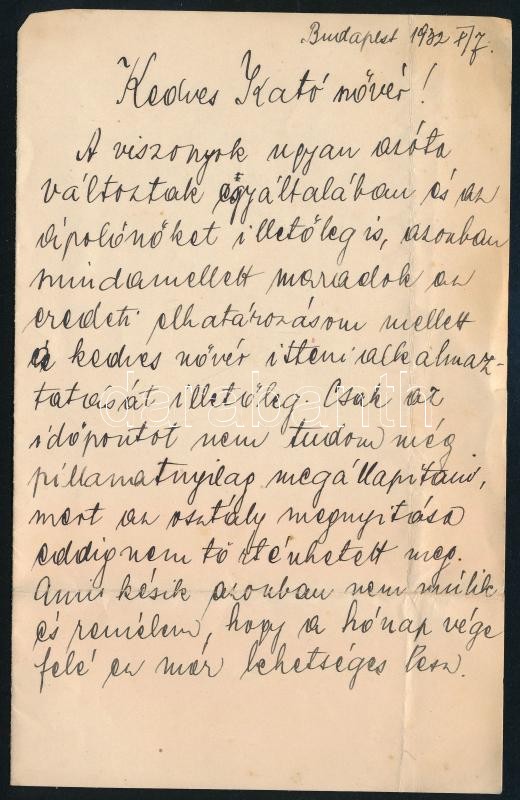 Budapest 1932 X/7.
Kedves Kató nővér!
A viszonyok ugyan azóta
változtak egyáltalában és az
ápolónőket illetőleg is, azonban
mindamellett maradok az
eredeti elhatározásom mellett
a kedves nővér itteni alkalmaz-
tatását illetőleg. Csak az
időpontot nem tudom még
pillanatnyilag megállapítani,
mert az osztály megnyitása
eddig nem történhetett meg.
Ami késik azonban nem múlik
és remélem, hogy a hónap vége
felé ez már lehetséges lesz.
darabanth